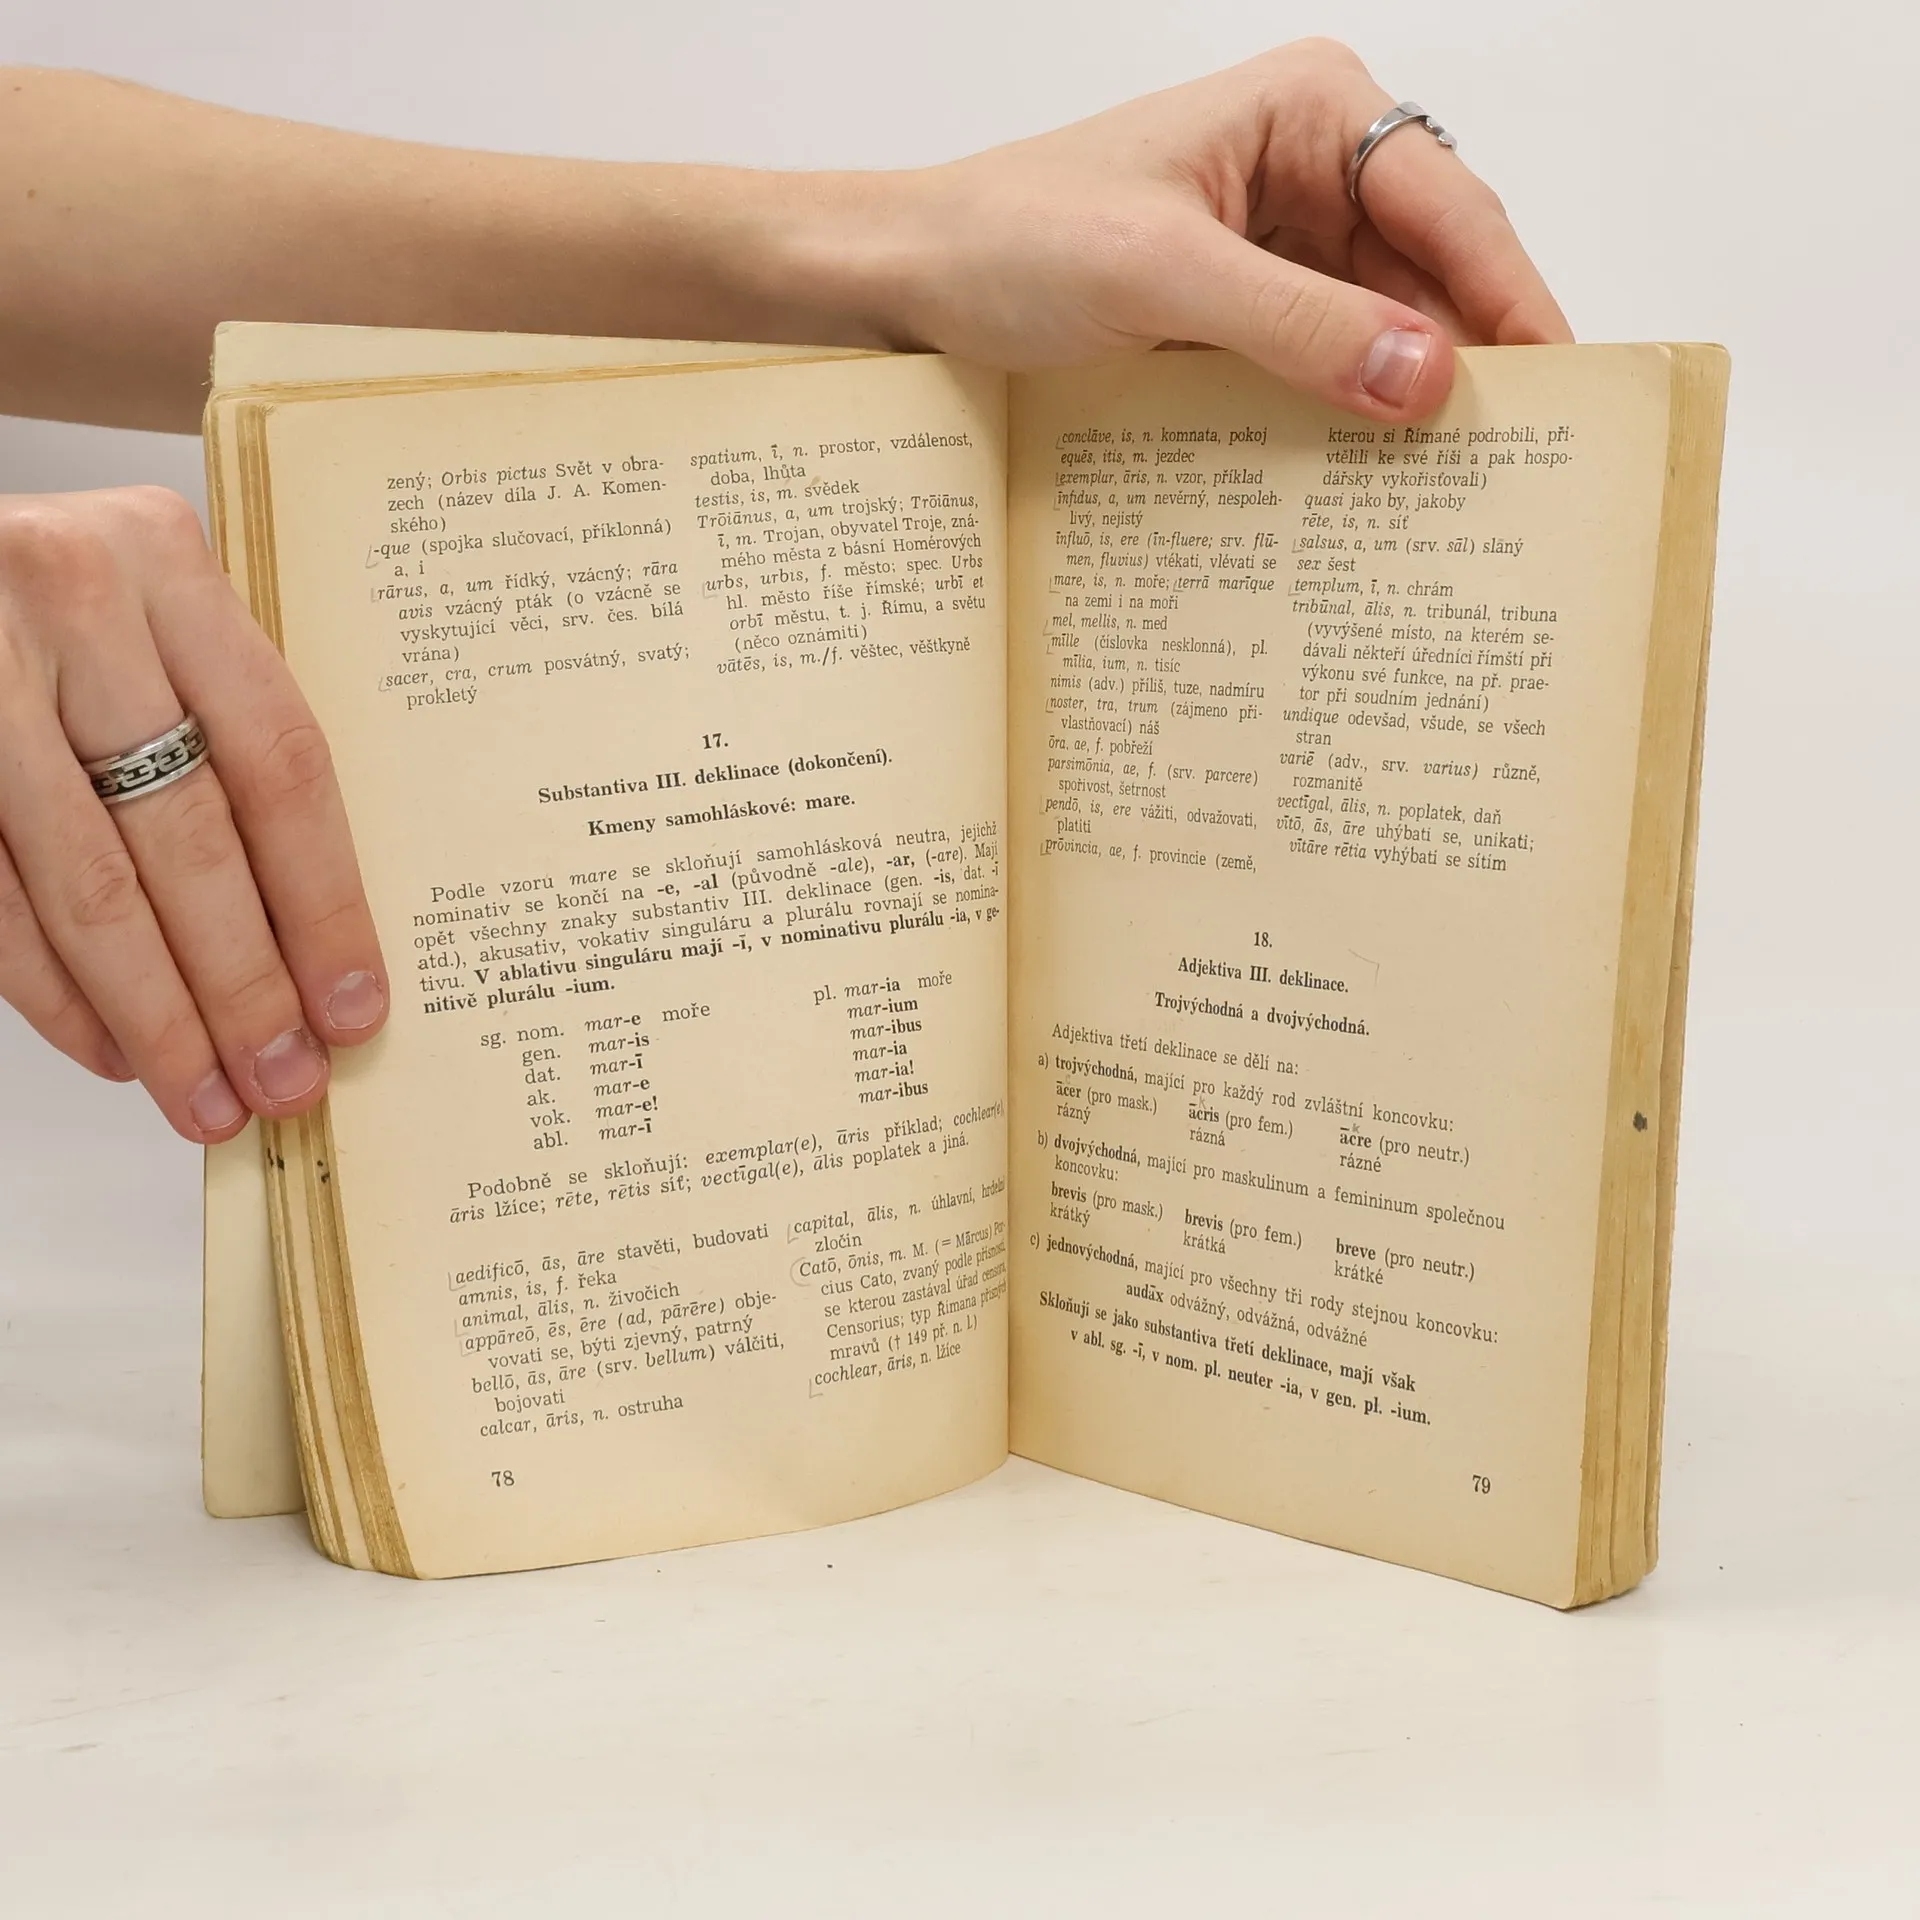 zený; Orbis pictus Svět v obra-
zech (název díla J. A. Komen-
ského)
-que (spojka slučovací, příklonná)
a, i
rārus, a, um řídký, vzácný; rāra
avis vzácný pták (o vzácně se
vyskytující věci, srv. čes. bílá
vrána)
sacer, cra, crum posvátný, svatý;
prokletý
spatium, ī, n. prostor, vzdálenost,
doba, lhůta
testis, is, m. svědek
Trōiānus, a, um trojský; Trōiānus,
ī, m. Trojan, obyvatel Troje, zná-
mého města z básní Homérových
urbs, urbis, f. město; spec. Urbs
hl. město říše římské; urbī et
orbī městu, t. j. Římu, a světu
(něco oznámiti)
vātēs, is, m./f. věštec, věštkyně
17.
Substantiva III. deklinace (dokončení).
Kmeny samohláskové: mare.
Podle vzoru mare se skloňují samohlásková neutra, jejichž
nominativ se končí na -e, -al (původně -ale), -ar, (-are). Mají
opět všechny znaky substantiv III. deklinace (gen. -is, dat. -ī
atd.), akusativ, vokativ singuláru a plurálu rovnají se nomina-
tivu. V ablativu singuláru mají -ī, v nominativu plurálu -ia, v ge-
nitivě plurálu -ium.
sg. nom. mar-e moře pl. mar-ia moře
gen. mar-is mar-ium
dat. mar-ī mar-ibus
ak. mar-e mar-ia
vok. mar-e! mar-ia!
abl. mar-ī mar-ibus
Podobně se skloňují: exemplar(e), āris příklad; cochlear(e),
āris lžíce; rēte, rētis síť; vectīgal(e), ālis poplatek a jiná.
aedificō, ās, āre stavěti, budovati
amnis, is, f. řeka
animal, ālis, n. živočich
appāreō, ēs, ēre (ad, pārēre) obje-
vovati se, býti zjevný, patrný
bellō, ās, āre (srv. bellum) válčiti,
bojovati
calcar, āris, n. ostruha
capital, ālis, n. úhlavní, hrdelní
zločin
Catō, ōnis, m. M. (= Mārcus) Por-
cius Cato, zvaný podle přísnosti,
se kterou zastával úřad censora,
Censorius; typ Římana přísných
mravů († 149 př. n. l.)
cochlear, āris, n. lžíce
78
conclāve, is, n. komnata, pokoj
equēs, itis, m. jezdec
exemplar, āris, n. vzor, příklad
īnfīdus, a, um nevěrný, nespoleh-
livý, nejistý
īnfluō, is, ere (in-fluere; srv. flū-
men, fluvius) vtékati, vlévati se
mare, is, n. moře; terrā marīque
na zemi i na moři
mel, mellis, n. med
mīlle (číslovka nesklonná), pl.
mīlia, ium, n. tisíc
nimis (adv.) příliš, tuze, nadmíru
noster, tra, trum (zájmeno při-
vlastňovací) náš
ōra, ae, f. pobřeží
parsimōnia, ae, f. (srv. parcere)
spořivost, šetrnost
pendō, is, ere vážiti, odvažovati,
platiti
prōvincia, ae, f. provincie (země,
kterou si Římané podrobili, při-
vtělili ke své říši a pak hospo-
dářsky vykořisťovali)
quasi jako by, jakoby
rēte, is, n. síť
salsus, a, um (srv. sāl) slaný
sex šest
templum, ī, n. chrám
tribūnal, ālis, n. tribunál, tribuna
(vyvýšené místo, na kterém se-
dávali někteří úředníci římští při
výkonu své funkce, na př. prae-
tor při soudním jednání)
undique odevšad, všude, se všech
stran
variē (adv., srv. varius) různě,
rozmanitě
vectīgal, ālis, n. poplatek, daň
vītō, ās, āre uhýbati se, unikati;
vītāre rētia vyhýbati se sítím
18.
Adjektiva III. deklinace.
Trojvýchodná a dvojvýchodná.
Adjektiva třetí deklinace se dělí na:
a) trojvýchodná, mající pro každý rod zvláštní koncovku:
ācer (pro mask.) ācris (pro fem.) ācre (pro neutr.)
rázný rázná rázné
b) dvojvýchodná, mající pro maskulinum a femininum společnou
koncovku:
brevis (pro mask.) brevis (pro fem.) breve (pro neutr.)
krátký krátká krátké
c) jednovýchodná, mající pro všechny tři rody stejnou koncovku:
audāx odvážný, odvážná, odvážné
Skloňují se jako substantiva třetí deklinace, mají však
v abl. sg. -ī, v nom. pl. neuter -ia, v gen. pl. -ium.
79